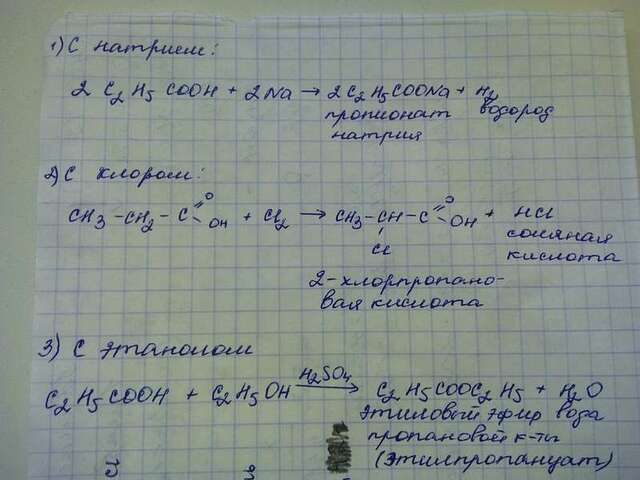 1) С натрием:
2 C2H5COOH + 2Na → 2C2H5COONa + H2
пропионат водород
натрия
2) С хлором:
CH3-CH2-C=O-OH + Cl2 → CH3-CH-C=O-OH + HCl
Cl соляная
кислота
2-хлорпропано-
вая кислота
3) С этанолом
C2H5COOH + C2H5OH H2SO4→ C2H5COOC2H5 + H2O
этиловый эфир вода
пропановой к-ты
(этилпропаноат)